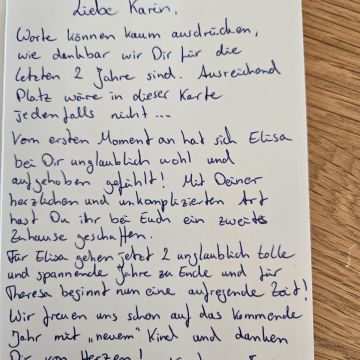 Liebe Karin,
Worte können kaum ausdrücken,
wie dankbar wir Dir für die
letzten 2 Jahre sind. Ausreichend
Platz wäre in dieser Karte
jedenfalls nicht...
Vom ersten Moment an hat sich Elisa
bei Dir unglaublich wohl und
aufgehoben gefühlt! Mit Deiner
herzlichen und unkomplizierten Art
hast Du ihr bei Euch ein zweites
Zuhause geschaffen.
Für Elisa gehen jetzt 2 unglaublich tolle
und spannende Jahre zu Ende und für
Theresa beginnt nun eine aufregende Zeit!
Wir freuen uns schon auf das kommende
Jahr mit „neuem" Kind und danken
Dir von Herzen!